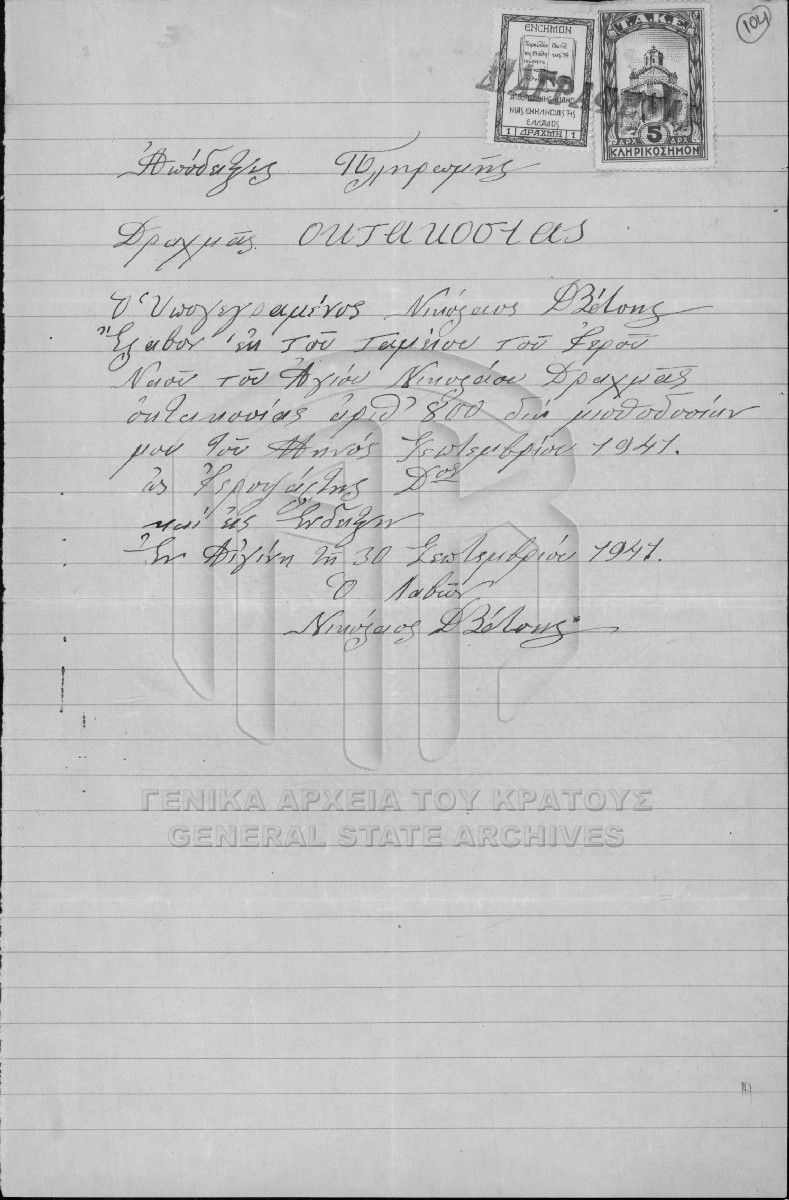 104
ΕΝΣΗΜΟΝ
ΕΚΚΛΗΣΙΑΣ ΤΗΣ
ΕΛΛΑΔΟΣ
1 ΔΡΑΧΜΗ 1
Τ.Α.Κ.Ε.
ΔΡΧ 5 ΔΡΧ
ΚΛΗΡΙΚΟΣΗΜΟΝ
Ἀπόδειξις Πληρωμῆς
Δραχμάς οκτακοσιας
Ὁ Ὑπογεγραμένος Νικόλαος
Ἔλαβον ἐκ τοῦ ταμείου τοῦ Ἱεροῦ
Ναοῦ τοῦ Ἁγίου Νικολάου Δραχμάς
ὀκτακοσίας ἀριθ 800 διά μισθοδοσίαν
μου τοῦ Μηνός Σεπτεμβρίου 1941.
ὡς Ἱεροψάλτης Δος
καί εἰς Ἔνδειξιν
Ἐν Αἰγίνῃ τῇ 30 Σεπτεμβρίου 1941.
Ὁ Λαβών
Νικόλαος
ΓΕΝΙΚΑ ΑΡΧΕΙΑ ΤΟΥ ΚΡΑΤΟΥΣ
GENERAL STATE ARCHIVES